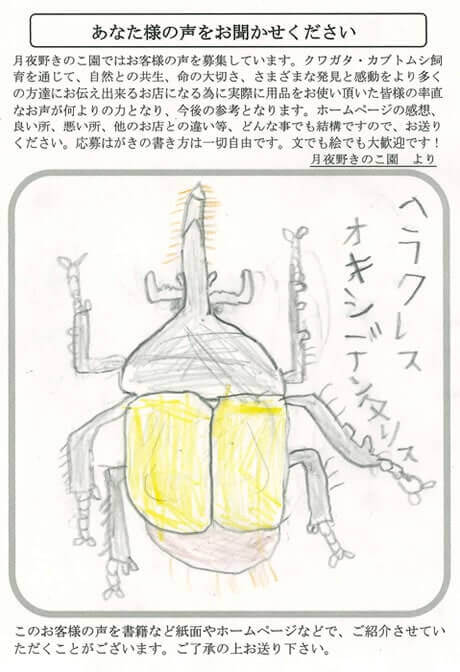 あなた様の声をお聞かせください
月夜野きのこ園ではお客様の声を募集しています。クワガタ・カブトムシ飼
育を通じて、自然との共生、命の大切さ、さまざまな発見と感動をより多く
の方達にお伝え出来るお店になる為に実際に用品をお使い頂いた皆様の率直
なお声が何よりの力となり、今後の参考となります。ホームページの感想、
良い所、悪い所、他のお店との違い等、どんな事でも結構ですので、お送り
ください。応募はがきの書き方は一切自由です。文でも絵でも大歓迎です！
月夜野きのこ園　より
ヘラクレス
オキシデナンタリス
このお客様の声を書籍など紙面やホームページなどで、ご紹介させてい
ただくことがございます。ご了承の上お送り下さい。